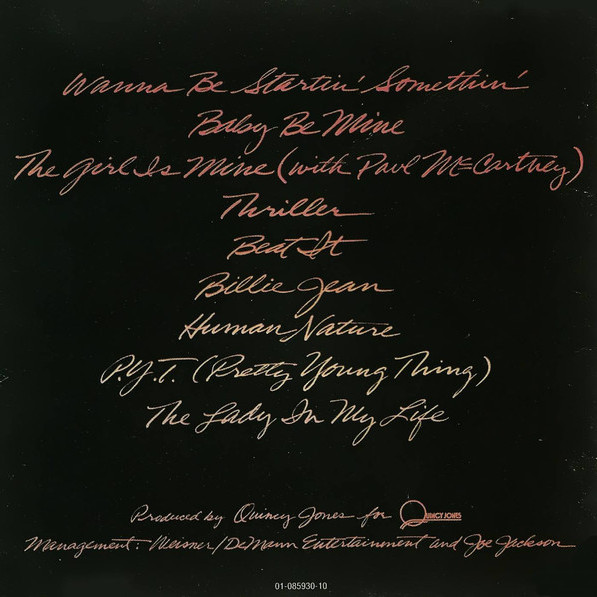 Wanna Be Startin' Somethin'
Baby Be Mine
The Girl Is Mine (with Paul McCartney)
Thriller
Beat It
Billie Jean
Human Nature
P.Y.T. (Pretty Young Thing)
The Lady In My Life
Produced by Quincy Jones for QUINCY JONES
Management: Weisner/DeMann Entertainment and Joe Jackson
01-085930-10